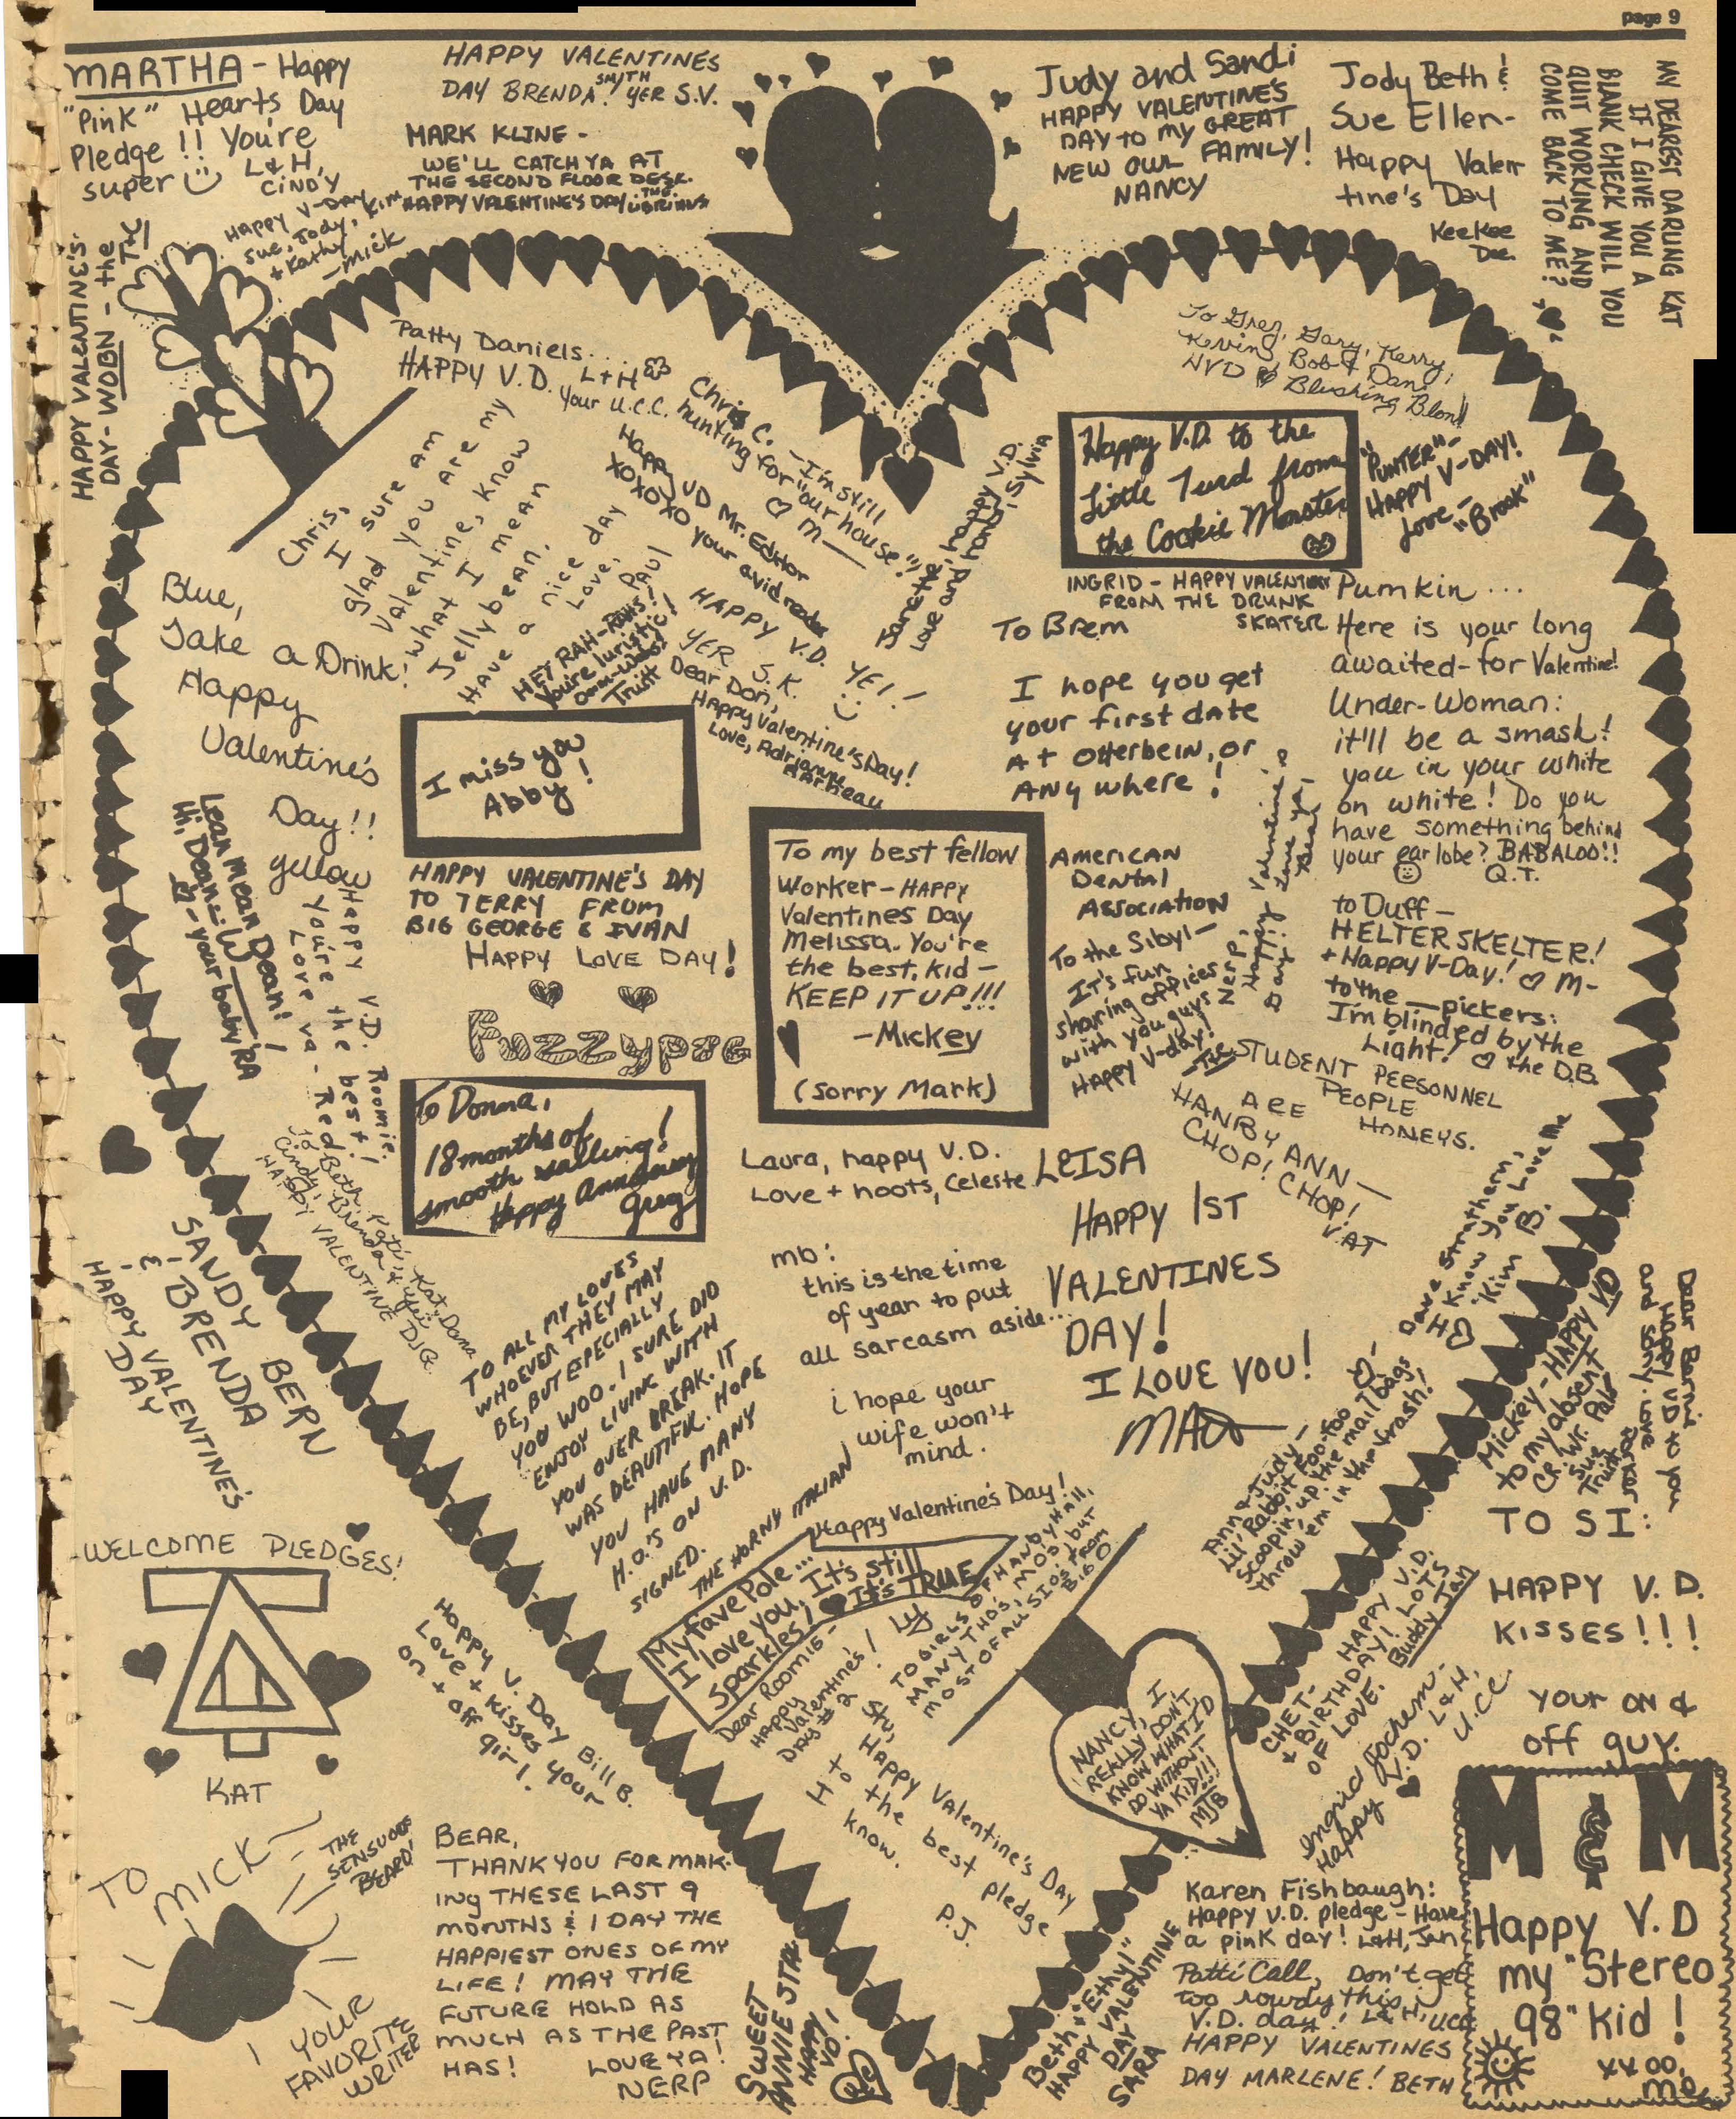 page 9
MARTHA - Happy
"Pink" Hearts Day
Pledge!! You're
super
L & H,
CINDY
HAPPY VALENTINES
DAY BRENDA SMYTH.
YER S.V.
MARK KLINE -
WE'LL CATCH YA AT
THE SECOND FLOOR DESK.
HAPPY VALENTINE'S DAY. THE
Happy V-Day
Sue, Jody, Kim
+ Kathy
-Mick
HAPPY VALENTINE'S
DAY - WOBN - the
Judy and Sandi
HAPPY VALENTINE'S
DAY to my GREAT
NEW OWL FAMILY!
NANCY
Jody Beth &
Sue Ellen-
Happy Valen
tine's Day
KeeKee
Dee
MY DEAREST DARLING KAT
IF I GIVE YOU A
BLANK CHECK WILL YOU
QUIT WORKING AND
COME BACK TO ME?
Patty Daniels...
HAPPY V.D.
L + H
Your U.C.C.
Chris C. - I'm still
hunting for "our house"!
M-
To Greg, Gary, Kerry,
Kevin, Bob & Dan,
HVD Blushing Blond
Happy V.D. to the
Little Turd from
the Cookie Monster
"PUNTER"-
Happy V-DAY!
Love-
"Brook"
Chris,
I sure am
glad you are my
Valentine, know
what I mean
Jellybean.
Have a nice day
Love,
Paul
Happy VD Mr. Editor
XOXOXO your avid reader
Janette, happy V.D.
Love and hoots, Sylvia
INGRID - HAPPY VALENTINE
FROM THE DRUNK
SKATER
Blue,
Take a Drink!
Happy
Valentine's
Day!!
yellow
HEY RAH-RAHS!
You're
Truitt
HAPPY V.D. YE!!
YER S.K.
Dear Don,
Happy Valentine's Day!
Love, Adrianne
Barbeau
To Brem
I hope you get
your first date
At Otterbein, or
ANY where!
Pumkin...
Here is your long
awaited-for Valentine!
Under-Woman:
it'll be a smash!
you in your white
on white! Do you
have something behind
your ear lobe? BABALOO!!
Q.T.
I miss you
Abby!
HAPPY VALENTINE'S DAY
TO TERRY FROM
BIG GEORGE & IVAN
HAPPY LOVE DAY!
Fuzzypie
To my best fellow
Worker - HAPPY
Valentines Day
Melissa. You're
the best, kid -
KEEP IT UP!!!
-Mickey
(sorry Mark)
AMERICAN
Dental
ASSOCIATION
To the Sibyl-
It's fun
sharing offices
with you guys
Happy V-day!
The
Nerp,
Happy Valentine's
Day!! Love Ya,
Bear
to Duff -
HELTER SKELTER!
+ Happy V-Day! M-
to the __pickers:
I'm blinded by the
Light! the D.B.
Lean mean Dean!
Hi, Dean-i-W
- your baby RA
Happy V.D. Roomie.
You're the best!
Love ya - Red
To Donna,
18 months of
smooth sailing!
Happy Anniversary
Greg
STUDENT PERSONNEL
PEOPLE
ARE
HONEYS.
HANBY ANN -
CHOP! CHOP!
V.AT
Laura, happy V.D.
Love + hoots, Celeste
LEISA
HAPPY 1ST
VALENTINES
DAY!
I LOVE YOU!
MAC
To Beth, Pati, Katy, Dana
Cindy, Brenda +
HAPPY VALENTINE
SANDY BERN
& BRENDA
HAPPY VALENTINE'S
DAY
TO ALL MY LOVES
WHOEVER THEY MAY
BE, BUT ESPECIALLY
YOU WOO. I SURE DID
ENJOY LIVING WITH
YOU OVER BREAK. IT
WAS BEAUTIFUL. HOPE
YOU HAVE MANY
H.O.'S ON V.D.
SIGNED.
THE HORNY ITALIAN
mb:
this is the time
of year to put
all sarcasm aside...
i hope your
wife won't
mind.
Dave Strathern,
I Know You Love Me
Kim B.
Dear Barnie
HAPPY VD to you
and Sony. Love
Parker
Mickey - HAPPY VD
to my absent
Cr. Wr. Pal
Sue
Truitt
Ann & Judy -
Lil' Rabbit Foo-foo
Scoopin' up the mail bags
throw 'em in the trash!
WELCOME PLEDGES!
KAT
Happy Valentine's Day!
My fave Pole...
I love you, It's still
sparkles! It's TRUE
Dear Roomie -
Happy
Valentine's
Day #2!
TO GIRLS OF HANBY HALL,
MANY THO'S, MOD, BUT
MOST OF ALL SIOS. FROM
BIG O
NANCY, I
REALLY DON'T
KNOW WHAT I'D
DO WITHOUT
YA KID!!!
MJB
TO SI:
HAPPY V.D.
KISSES!!!
your on &
off guy.
CHET- HAPPY V.D.
+ BIRTHDAY! LOTS
OF LOVE. Buddy Jan
Ingrid Jochem-
Happy V.D. L & H,
U.C.C.
Happy V. Day Bill B.
Love + kisses your
on + off girl.
Happy Valentine's Day
to the best pledge
I know.
P.J.
TO MICK-
THE
SENSUOUS
BEARD!
YOUR
FAVORITE
WRITER
BEAR,
THANK YOU FOR MAK-
ING THESE LAST 9
MONTHS & 1 DAY THE
HAPPIEST ONES OF MY
LIFE! MAY THE
FUTURE HOLD AS
MUCH AS THE PAST
HAS! LOVE YA!
NERP
SWEET
ANNIE STR
HAPPY
VD!
Beth & "Ethyl"
HAPPY VALENTINE
DAY
SARA
Karen Fishbaugh:
Happy V.D. pledge - Have
a pink day! L&H, Jan
Patti Call, Don't get
too rowdy this
V.D. day! L&H, UCC
HAPPY VALENTINES
DAY MARLENE! BETH
M & M
Happy V.D
my "Stereo
98" Kid!
xx oo,
me